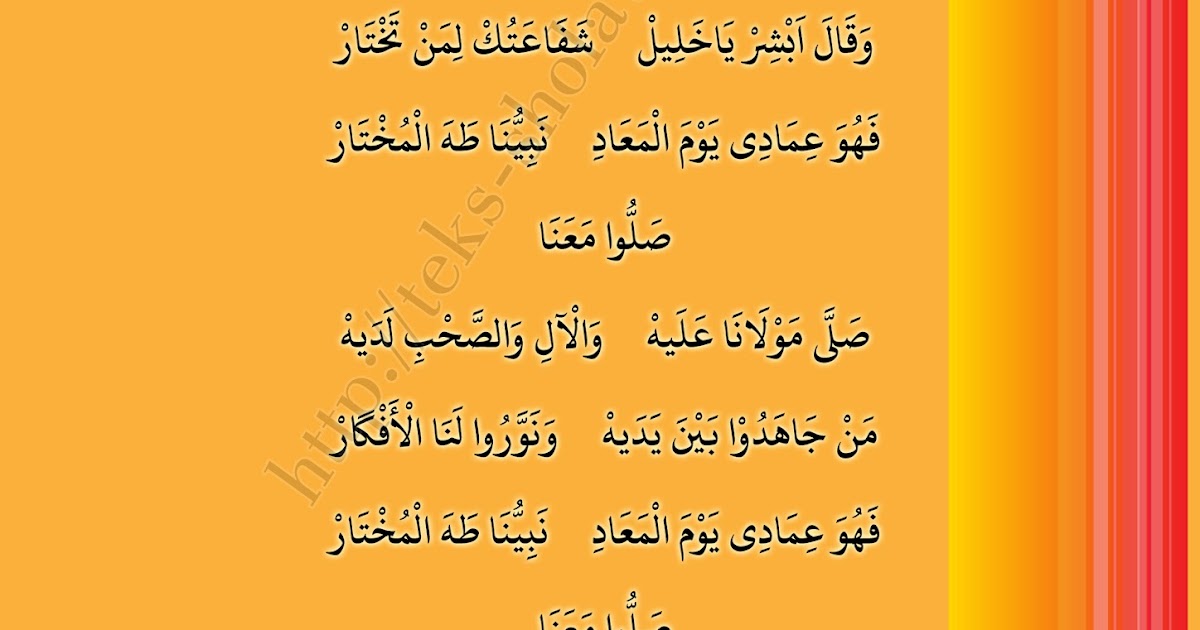 وَقَالَ اَبْشِرْ يَاخَلِيلْ شَفَاعَتُكْ لِمَنْ تَخْتَارْ
فَهُوَ عِمَادِى يَوْمَ الْمَعَادِ نَبِيُّنَا طَهَ الْمُخْتَارْ
صَلُّوا مَعَنَا
صَلَّى مَوْلَانَا عَلَيهْ وَالْآلِ وَالصَّحْبِ لَدَيهْ
مَنْ جَاهَدُوْا بَيْنَ يَدَيهْ وَنَوَّرُوا لَنَا الْأَفْكَارْ
فَهُوَ عِمَادِى يَوْمَ الْمَعَادِ نَبِيُّنَا طَهَ الْمُخْتَارْ
صَلُّوا مَعَنَا
http://teks-shola